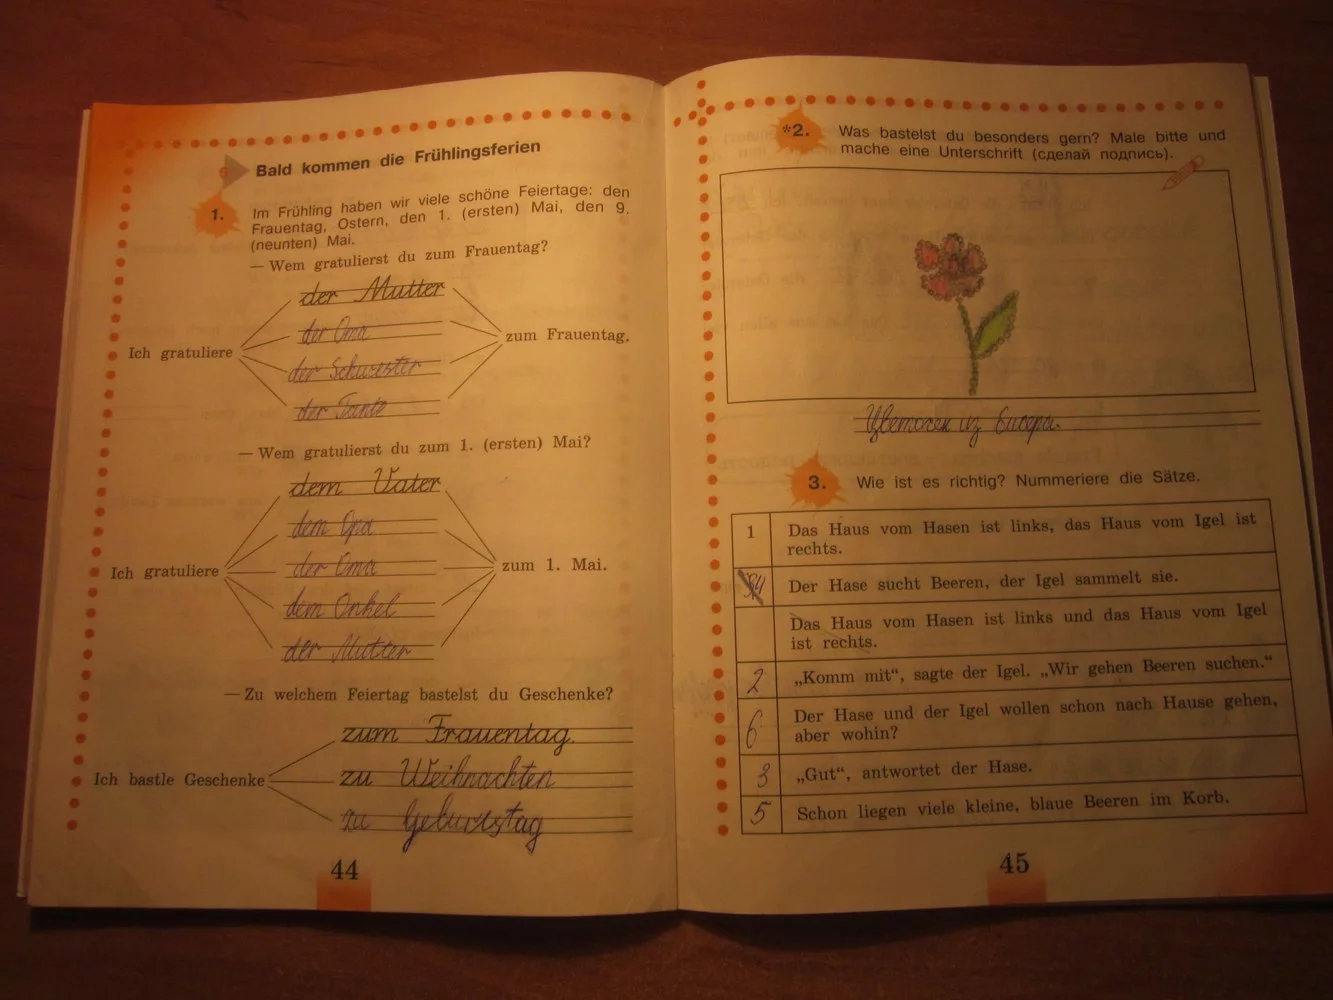 6 Bald kommen die Frühlingsferien
1. Im Frühling haben wir viele schöne Feiertage: den
Frauentag, Ostern, den 1. (ersten) Mai, den 9.
(neunten) Mai.
— Wem gratulierst du zum Frauentag?
der Mutter
der Oma
Ich gratuliere zum Frauentag.
der Schwester
der Tante
— Wem gratulierst du zum 1. (ersten) Mai?
dem Vater
dem Opa
Ich gratuliere der Oma zum 1. Mai.
dem Onkel
der Mutter
— Zu welchem Feiertag bastelst du Geschenke?
zum Frauentag.
Ich bastle Geschenke zu Weihnachten
zu Geburtstag
44
*2. Was bastelst du besonders gern? Male bitte und
mache eine Unterschrift (сделай подпись).
Цветочек из бисера.
3. Wie ist es richtig? Nummeriere die Sätze.
1 Das Haus vom Hasen ist links, das Haus vom Igel ist
rechts.
4 Der Hase sucht Beeren, der Igel sammelt sie.
Das Haus vom Hasen ist links und das Haus vom Igel
ist rechts.
2 „Komm mit“, sagte der Igel. „Wir gehen Beeren suchen.“
6 Der Hase und der Igel wollen schon nach Hause gehen,
aber wohin?
3 „Gut“, antwortet der Hase.
5 Schon liegen viele kleine, blaue Beeren im Korb.
45